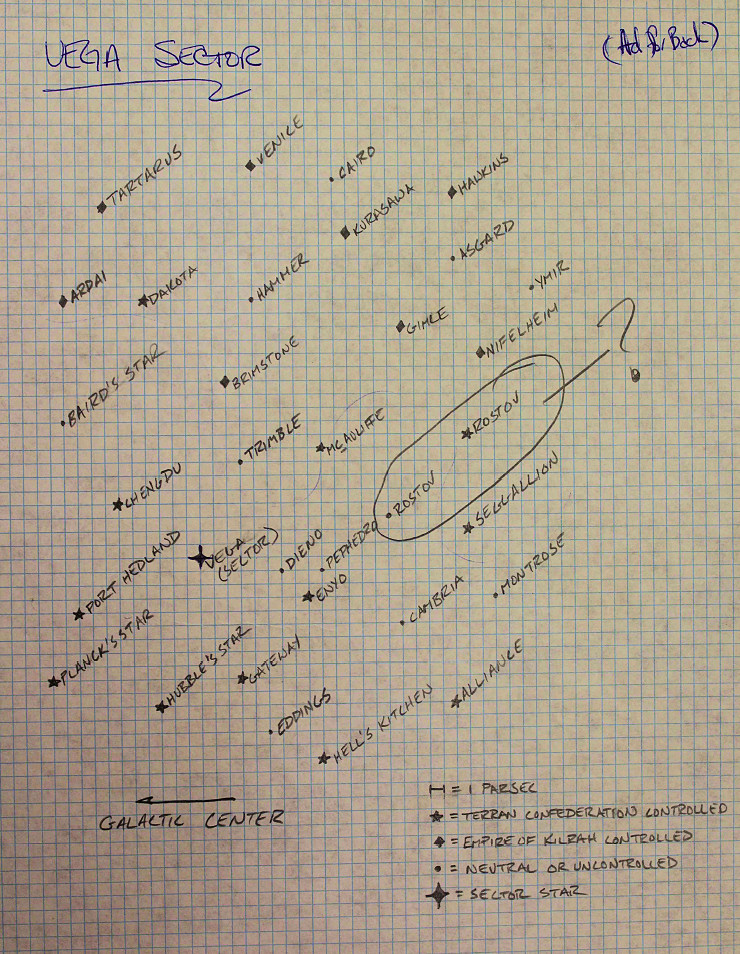 VEGA SECTOR
(Ad for Back)
VENICE
CAIRO
TARTARUS
HAWKINS
KURASAWA
ASGARD
YMIR
ARDAI
DAKOTA
HAMMER
GIMLE
NIFELHEIM
BRIMSTONE
BAIRD'S STAR
?
ROSTOV
TRIMBLE
MCAULIFFE
CHENGDU
ROSTOV
SEGGALLION
VEGA
(SECTOR)
DIENO
PEPHEDRO
ENYO
PORT HEDLAND
CAMBRIA
MONTROSE
PLANCK'S STAR
HUBBLE'S STAR
GATEWAY
ALLIANCE
EDDINGS
HELL'S KITCHEN
= 1 PARSEC
= TERRAN CONFEDERATION CONTROLLED
= EMPIRE OF KILRAH CONTROLLED
= NEUTRAL OR UNCONTROLLED
= SECTOR STAR
GALACTIC CENTER